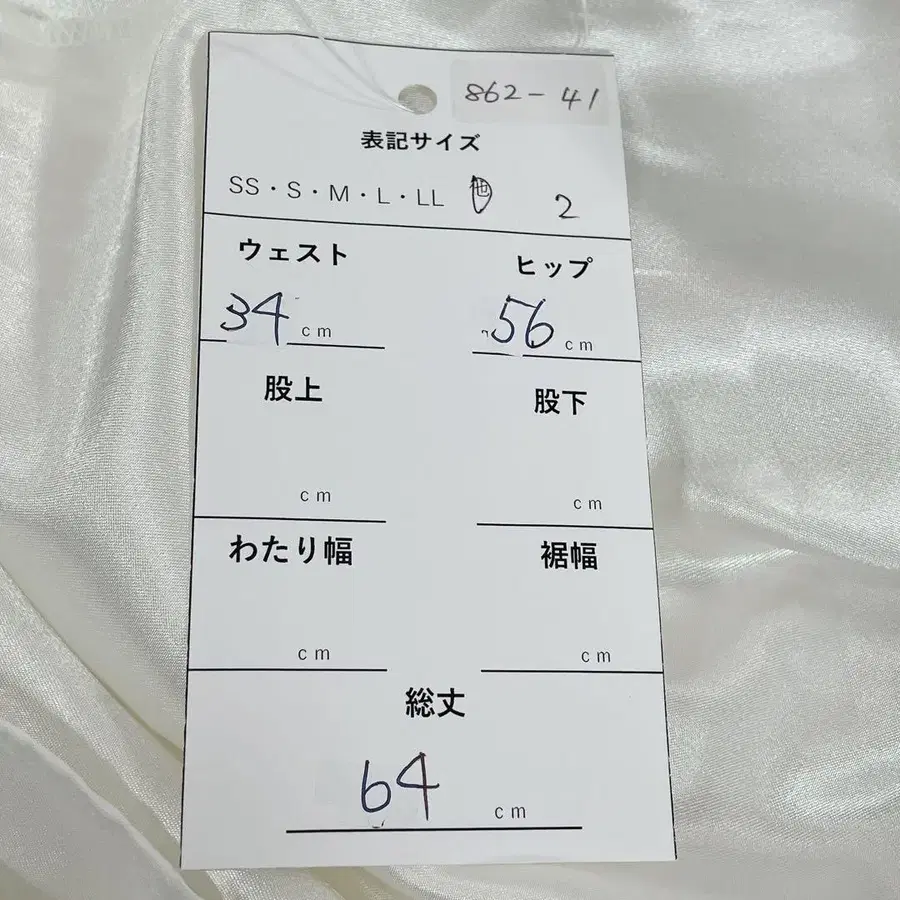 862-41
表記サイズ
SS・S・M・L・LL 他 2
ウェスト ヒップ
34 cm 56 cm
股上 股下
cm cm
わたり幅 裾幅
cm cm
総丈
64 cm